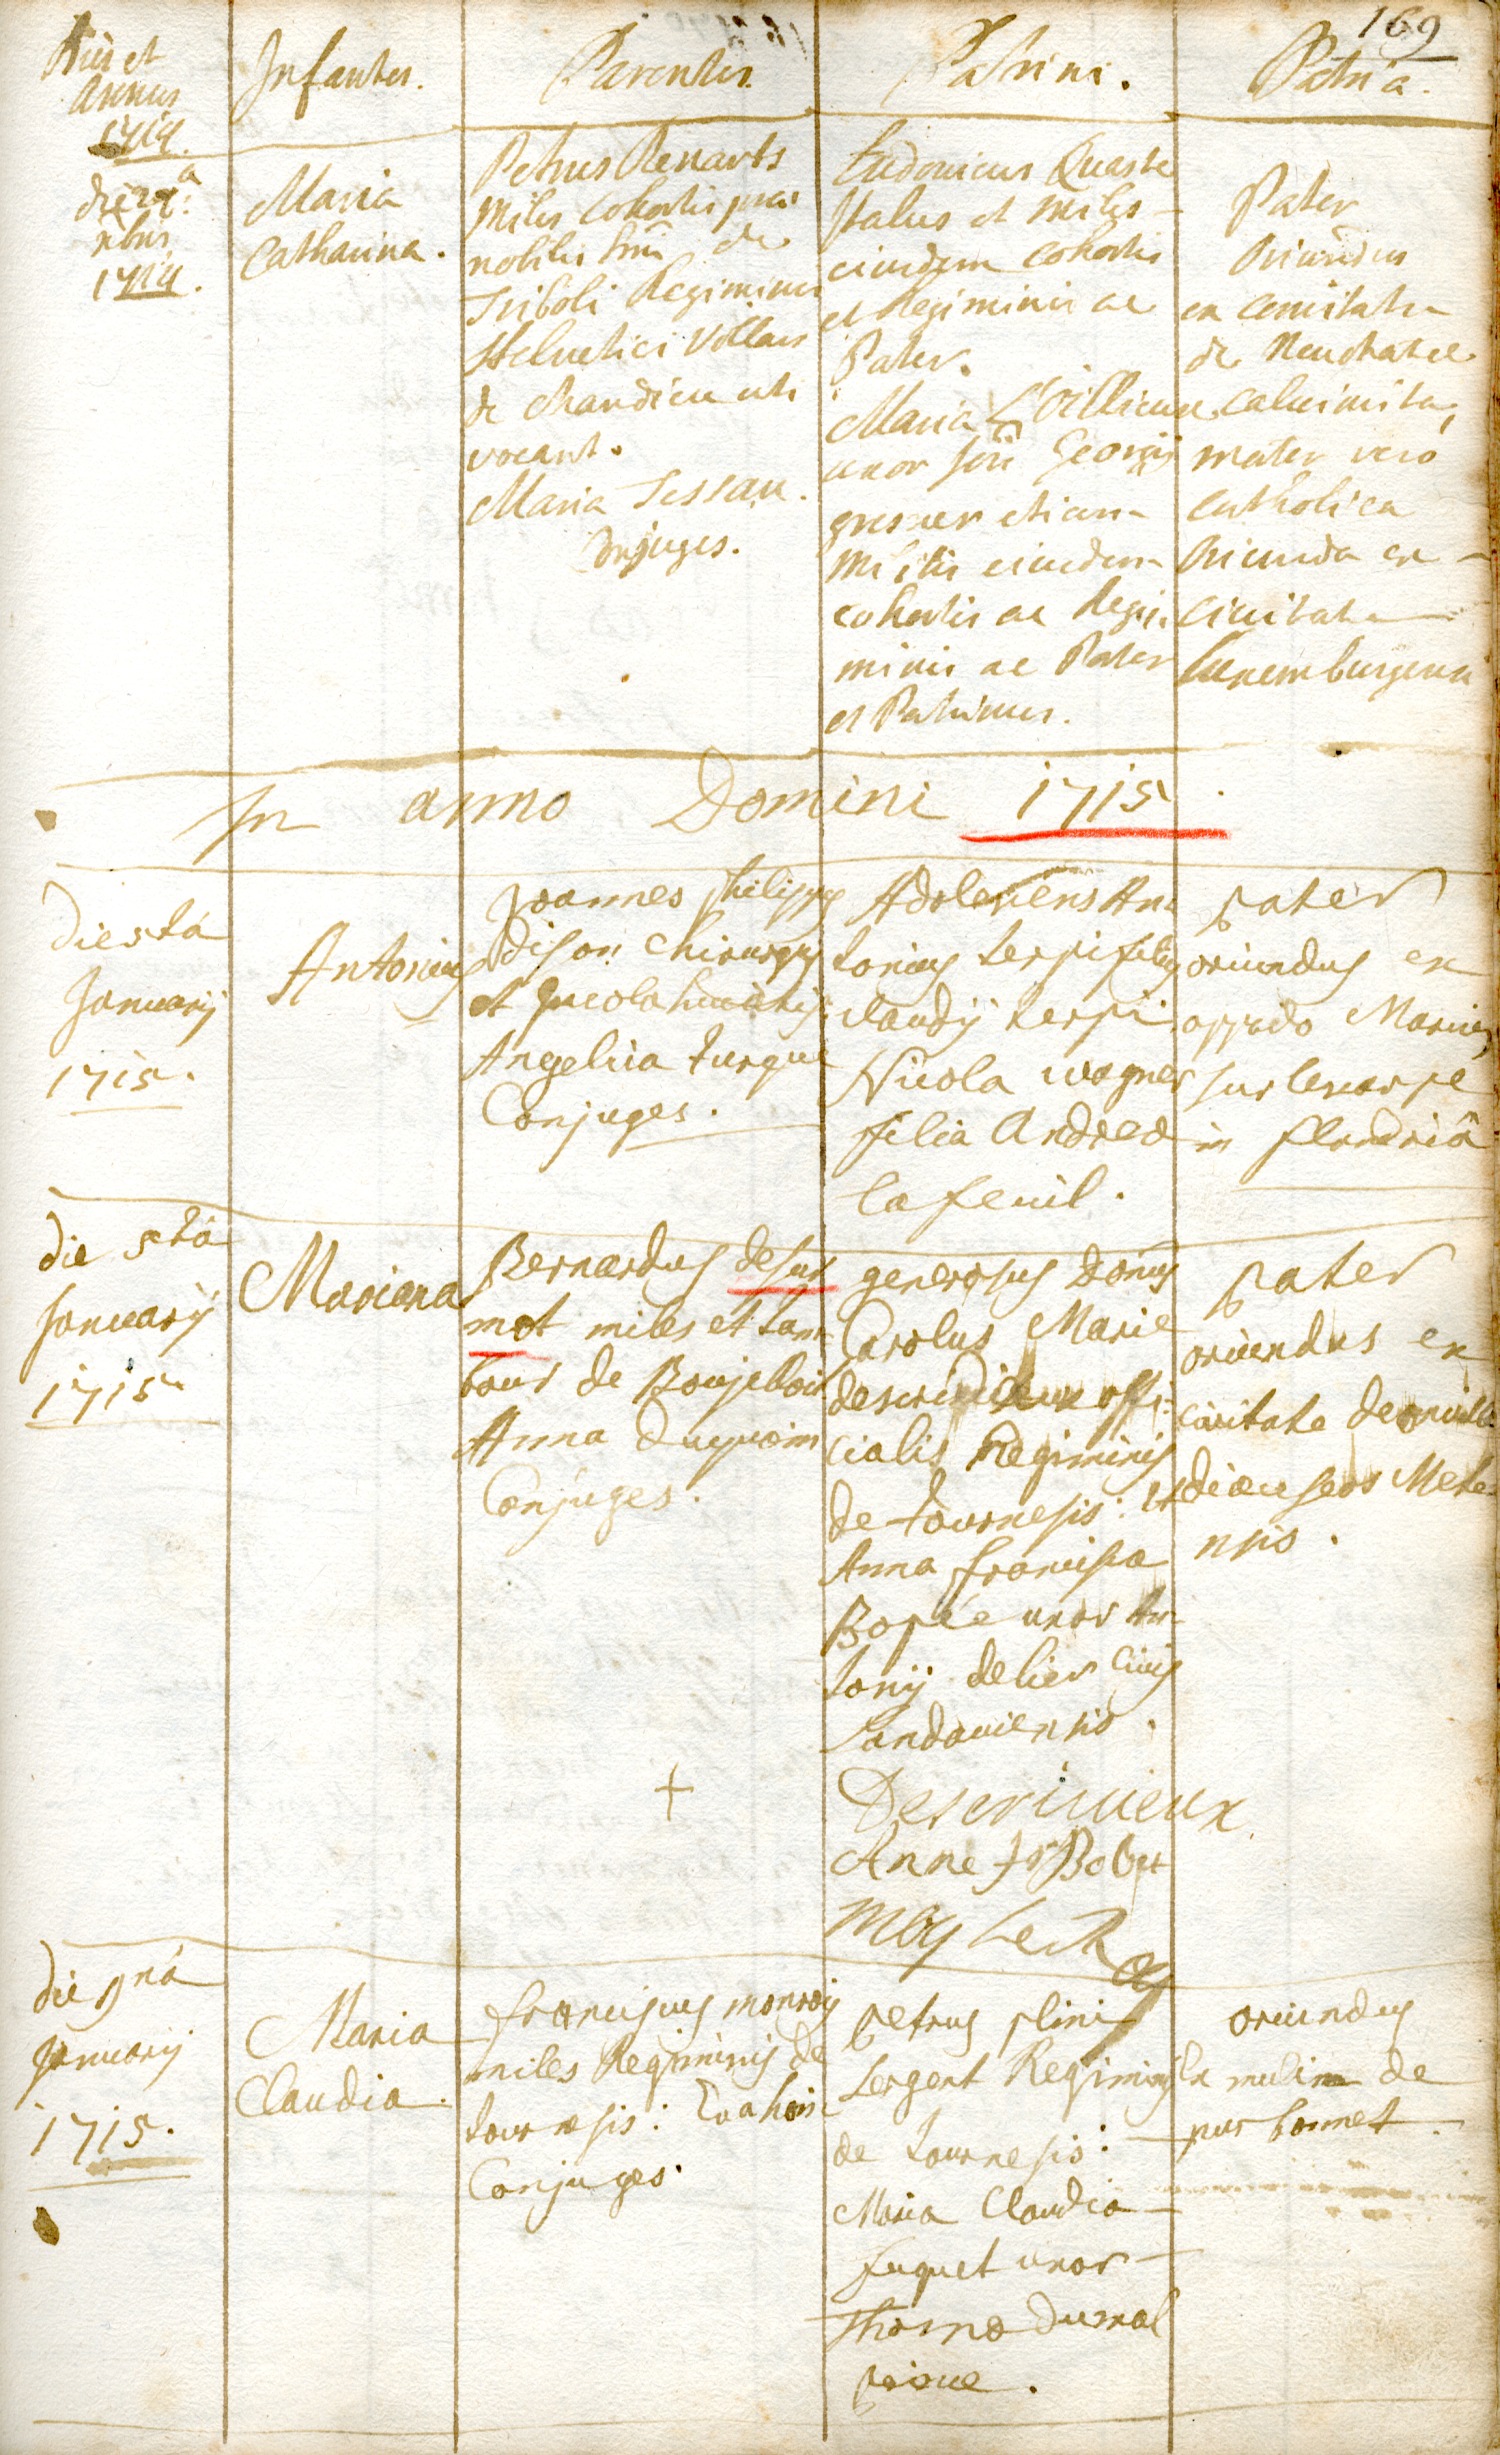 169
Dies et
Annus
1714.
Infantes.
Parentes.
Patrini.
Patria.
xbris
1714.
Maria
Catharina.
Petrus Renarts
Miles Cohortis præ
nobilis Dni de
Triboli Regiminis
Helvetici Villars
de Chandieu uti
vocant.
Maria Tessau.
Conjuges.
Ludovicus Quaste
Italus et Miles
eiusdem Cohortis
et Regiminis ac
Pater.
Maria
uxor Joñis Georgij
gresner etiam
Militis eiusdem
cohortis ac Regi-
minis ac Pater
et Patrinus.
Pater
Oriundus
ex comitatu
de Neuchatel
calvinista,
mater vero
Catholica
Oriunda ex
civitate
Luxemburgensi
In anno Domini 1715.
Die 5ta
Januarij
1715.
Antonius
Joannes Philippus
Dison Chirurgus
et Incola
Angelica Turque
Conjuges.
Adolescens An-
tonius Terpi filius
claudij Terpi
Nicola wagner
filia Andreæ
lafeuil.
pater
oriundus ex
oppido Marchien
sur lescarpe
in flandriâ
die 5ta
Januarij
1715.
Mariana
Bernardus desur
mot miles et tam
bour de Boujelois
Anna duquoin
Conjuges.
generosus Domus
Carolus Marie
descrimieux offi-
cialis Regiminis
de tournesis: et
Anna francisca
Bopée uxor An-
tonij delier civis
Landaviensis.
Descrimieux
Anne fr Bobet
pater
oriundus ex
civitate
diœceseos Mete-
nsis.
+
die 9na
Januarij
1715.
Maria
Claudia.
franciscus monroy
miles Regiminis de
tournesis: Eva
Conjuges.
petrus plini
sergent Regiminis
de tournesis:
Maria Claudia
fuquet uxor
Thomæ dumal
prioue.
oriundus
Ex mulin de
pur bonnet.